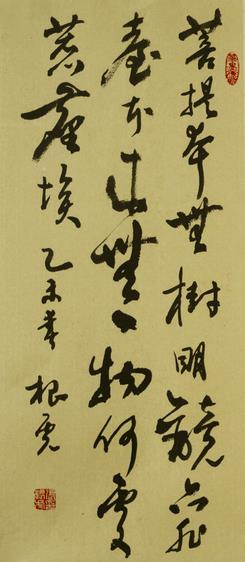 菩提本無樹明鏡亦非
臺本来無一物何處
惹塵埃 乙未 根